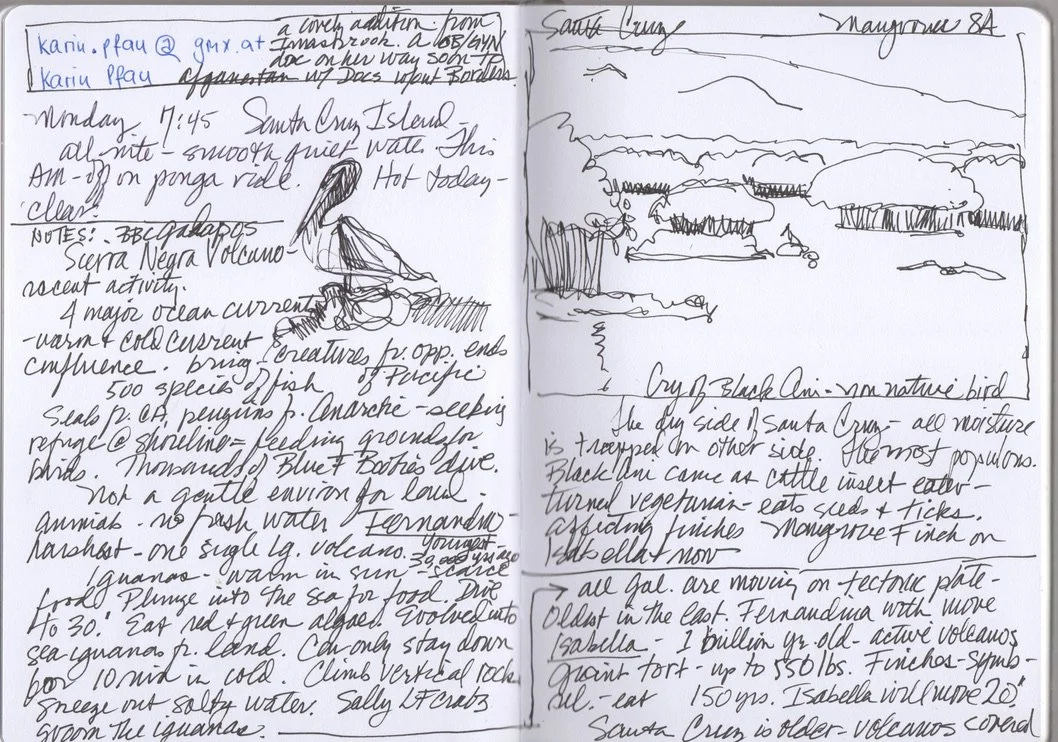 karin.pfau@gmx.at
Karin Pfau
a lovely addition from
Innsbrook. a OB/GYN
doc on her way soon to
afganestan w/ Docs w/out Borders
Monday 7:45 Santa Cruz Island -
all nite - smooth quiet water This
Am - off on panga ride. Hot today -
clear.
NOTES: BBC Galapagos
Sierra Negra Volcano -
recent activity.
4 major ocean current
- warm & cold current
confluence. bring creatures fr. opp. ends
of Pacific
500 species of fish
Seals fr. CA, penguins fr. Anarctic - seeking
refuge @ shoreline = feeding grounds for
birds. Thousands of Blue F Boobies dive.
Not a gentle environ for land -
animals - no fresh water Fernandina -
harshest - one single lg. volcano. youngest -
30,000 yrs ago
Iguanas - warm in sun - scarce
food. Plunge into the sea for food. Dive
to 30.' Eat red & green algae. Evolved into
sea iguanas fr. land. Can only stay down
for 10 min in cold. Climb vertical rocks
sneeze out salty water. Sally LF crabs
groom the iguanas.
Santa Cruz Mangroves 8A
Cry of Black Ani - non native bird
The dry side of Santa Cruz - all moisture
is trapped on other side. the most populous.
Black Ani came as cattle insect eater -
turned vegetarian - eats seeds & ticks.
affecting finches Mangrove Finch on
Isabella now
→ all Gal. are moving on tectonic plate -
Oldest in the east. Fernandina with move
Isabella - 1 billion yr. old - active volcanos
giant tort - up to 550 lbs. Finches - symb -
sel. - eat 150 yrs. Isabella will move 20"
Santa Cruz is older - volcanos covered